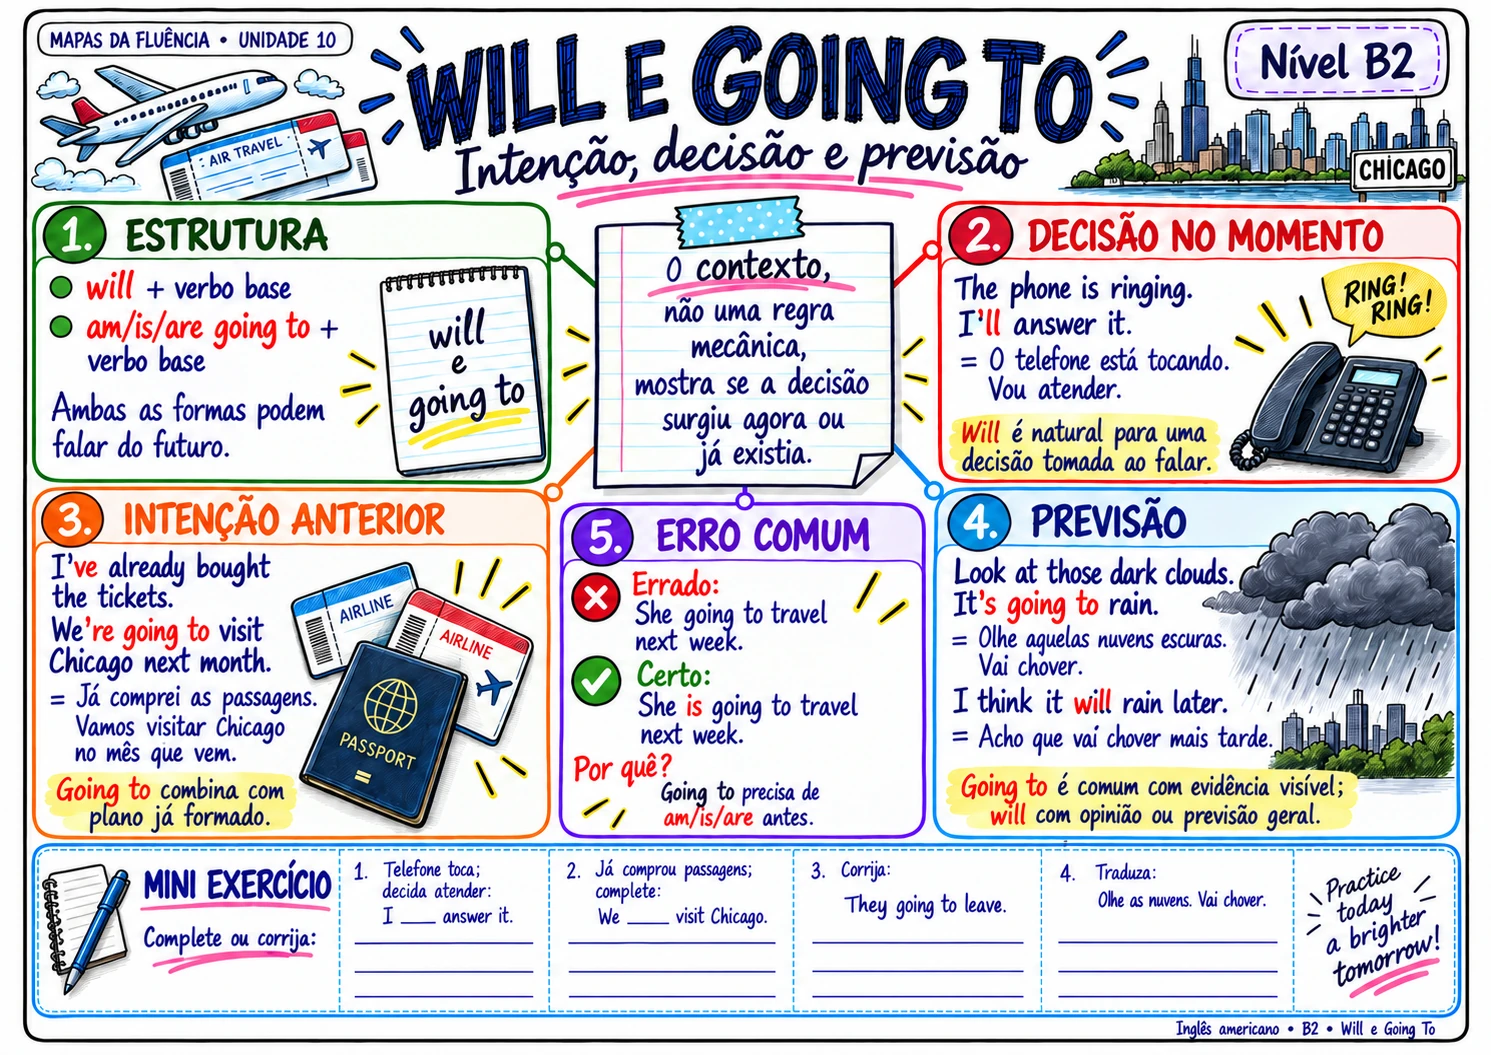 MAPAS DA FLUÊNCIA • UNIDADE 10
WILL E GOING TO
Intenção, decisão e previsão
Nível B2
AIR TRAVEL
CHICAGO
1. ESTRUTURA
will + verbo base
am/is/are going to +
verbo base
Ambas as formas podem
falar do futuro.
will
e
going to
O contexto,
não uma regra
mecânica,
mostra se a decisão
surgiu agora ou
já existia.
2. DECISÃO NO MOMENTO
The phone is ringing.
I'll answer it.
= O telefone está tocando.
Vou atender.
RING!
RING!
Will é natural para uma
decisão tomada ao falar.
3. INTENÇÃO ANTERIOR
I've already bought
the tickets.
We're going to visit
Chicago next month.
= Já comprei as passagens.
Vamos visitar Chicago
no mês que vem.
Going to combina com
plano já formado.
AIRLINE
AIRLINE
PASSPORT
5. ERRO COMUM
Errado:
She going to travel
next week.
Certo:
She is going to travel
next week.
Por quê?
Going to precisa de
am/is/are antes.
4. PREVISÃO
Look at those dark clouds.
It's going to rain.
= Olhe aquelas nuvens escuras.
Vai chover.
I think it will rain later.
= Acho que vai chover mais tarde.
Going to é comum com evidência visível;
will com opinião ou previsão geral.
MINI EXERCÍCIO
Complete ou corrija:
1. Telefone toca;
decida atender:
I ____ answer it.
2. Já comprou passagens;
complete:
We ____ visit Chicago.
3. Corrija:
They going to leave.
4. Traduza:
Olhe as nuvens. Vai chover.
Practice
today
a brighter
tomorrow!
Inglês americano • B2 • Will e Going To